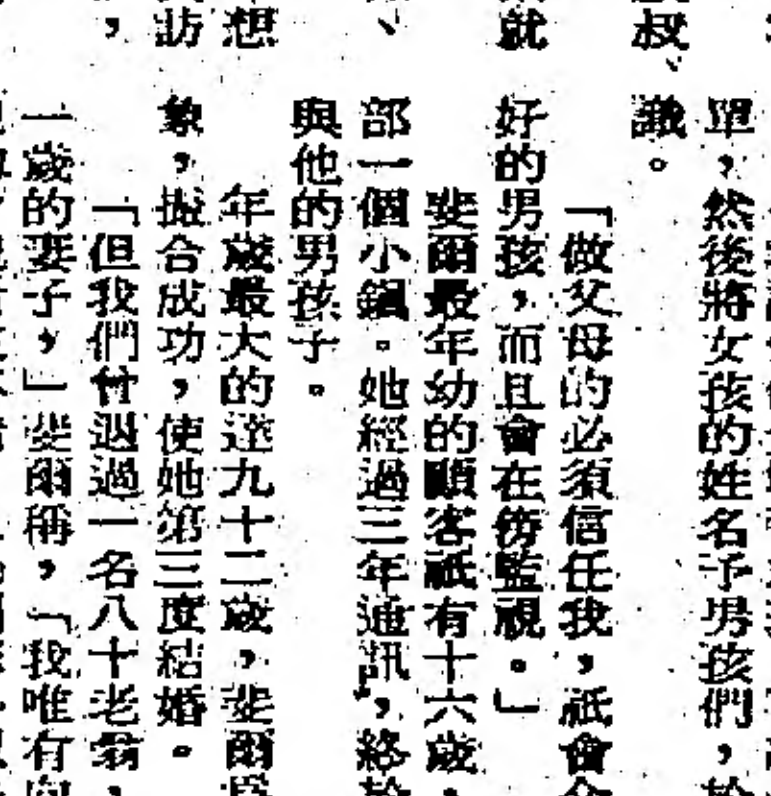 單，然後將女孩的姓名予男孩們，
識。
「做父母的必須信任我，祇會
好的男孩，而且會在傍監視。」
斐爾最年幼的顧客祇有十六歲，
部一個小鎮。她經過三年通訊，終於
與他的男孩子。
年歲最大的達九十二歲，斐爾
象，撮合成功，使她第三度結婚。
「但我們曾遇過一名八十老翁，
一歲的妻子，」斐爾稱，「我唯有向
叔、
就
、
想
訪
，